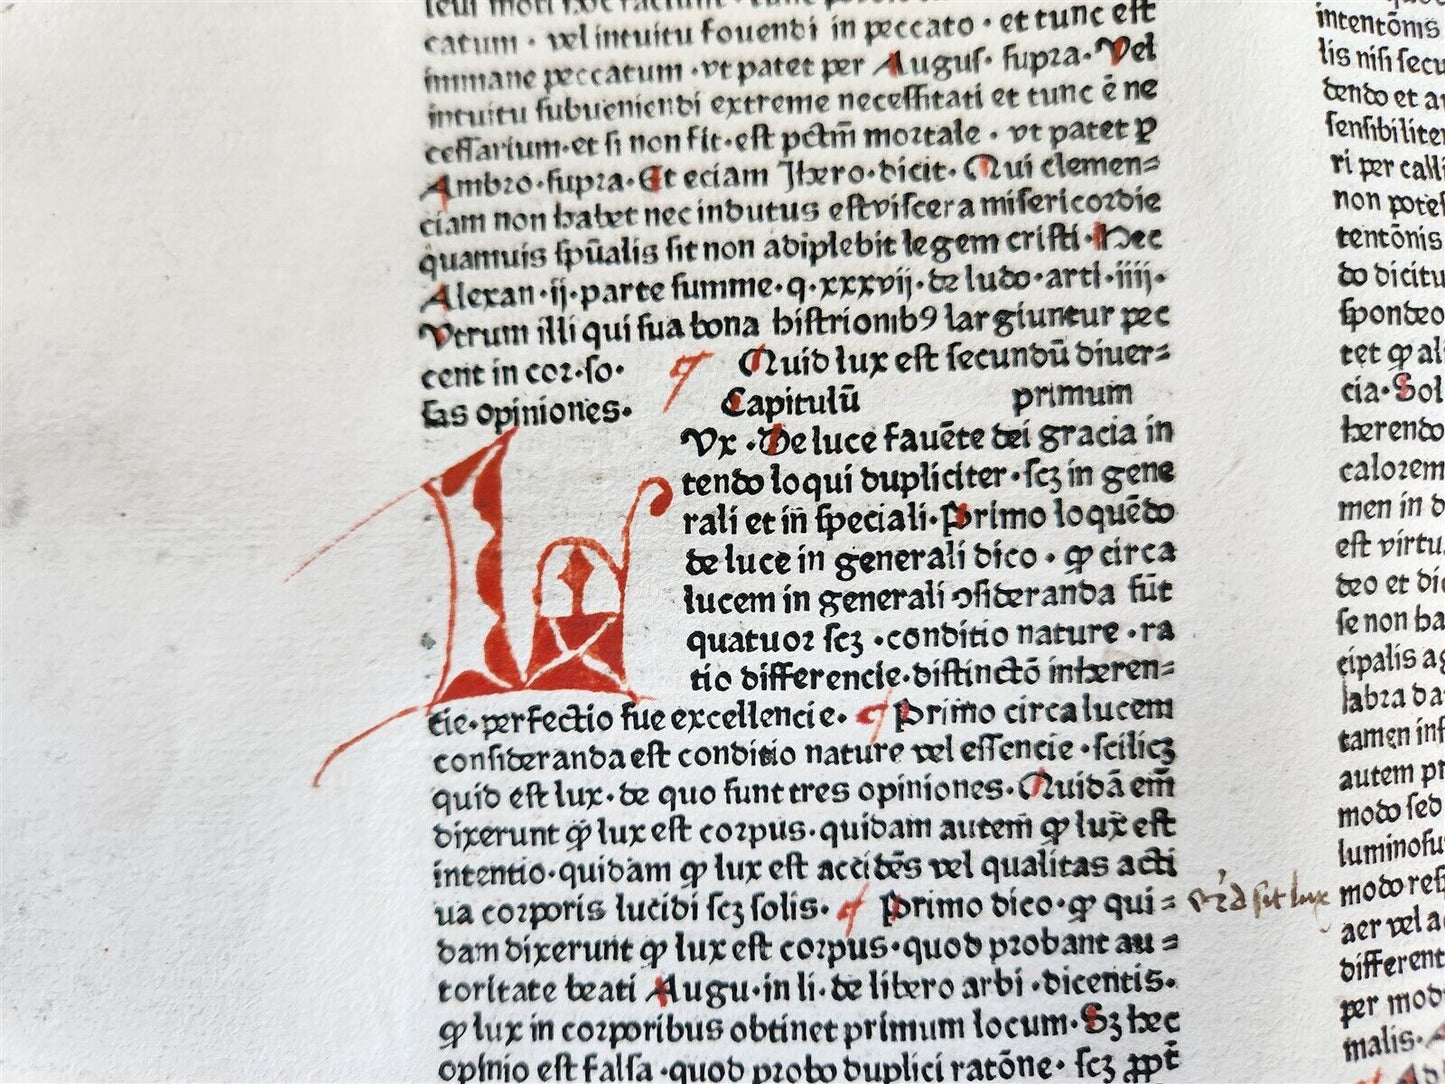 catum · vel intuitu fouendi in peccato · et tunc est
immane peccatum · vt patet per Augus· supra· Vel
intuitu subueniendi extreme necessitati et tunc ē ne
cessarium· et si non fit· est pctm̄ mortale · vt patet ꝑ
Ambro· supra· Et eciam Jhero· dicit· Qui clemen⸗
ciam non habet nec indutus est viscera misericordie
quamuis spūalis sit non adiplebit legem cristi· Hec
Alexan· ij· parte summe· q· xxxvij· de ludo· arti· iiij·
Vtrum illi qui sua bona histrionibꝰ largiuntur pec
cent in cor· so·
Quid lux est secundū diuer⸗
sas opiniones·
Capitulū primum
L
Vx · De luce fauēte dei gracia in
tendo loqui dupliciter · scꝫ in gene
rali et in speciali· Primo loquēdo
de luce in generali dico · ꝙ circa
lucem in generali ꝯsideranda sūt
quatuor scꝫ · conditio nature · ra
tio differencie· distinctō inheren⸗
tie· perfectio sue excellencie· Primo circa lucem
consideranda est conditio nature vel essencie · scilicꝫ
quid est lux· de quo sunt tres opiniones· Quidā em̄
dixerunt ꝙ lux est corpus· quidam autem ꝙ lux est
intentio· quidam ꝙ lux est accidēs vel qualitas acti
ua corporis lucidi scꝫ solis· Primo dico· ꝙ qui⸗
dam dixerunt ꝙ lux est corpus· quod probant au⸗
toritate beati Augu· in li· de libero arbi · dicentis·
ꝙ lux in corporibus obtinet primum locum· Sꝫ hec
opinio est falsa· quod probo duplici ratōne· scꝫ
sit lux
intentōnis
lis nisi secu
dendo et a
sensibiliter
ri per calli
non potes
tentōnis
do dicitu
spondeo
tet ꝙ ali
cia· Sol
herendo
calorem
men in d
est virtu
deo et di
se non ha
cipalis ag
labra da
tamen inf
autem pr
modo sed
luminosu
modo res
aer vel a
different
per mod
malis·